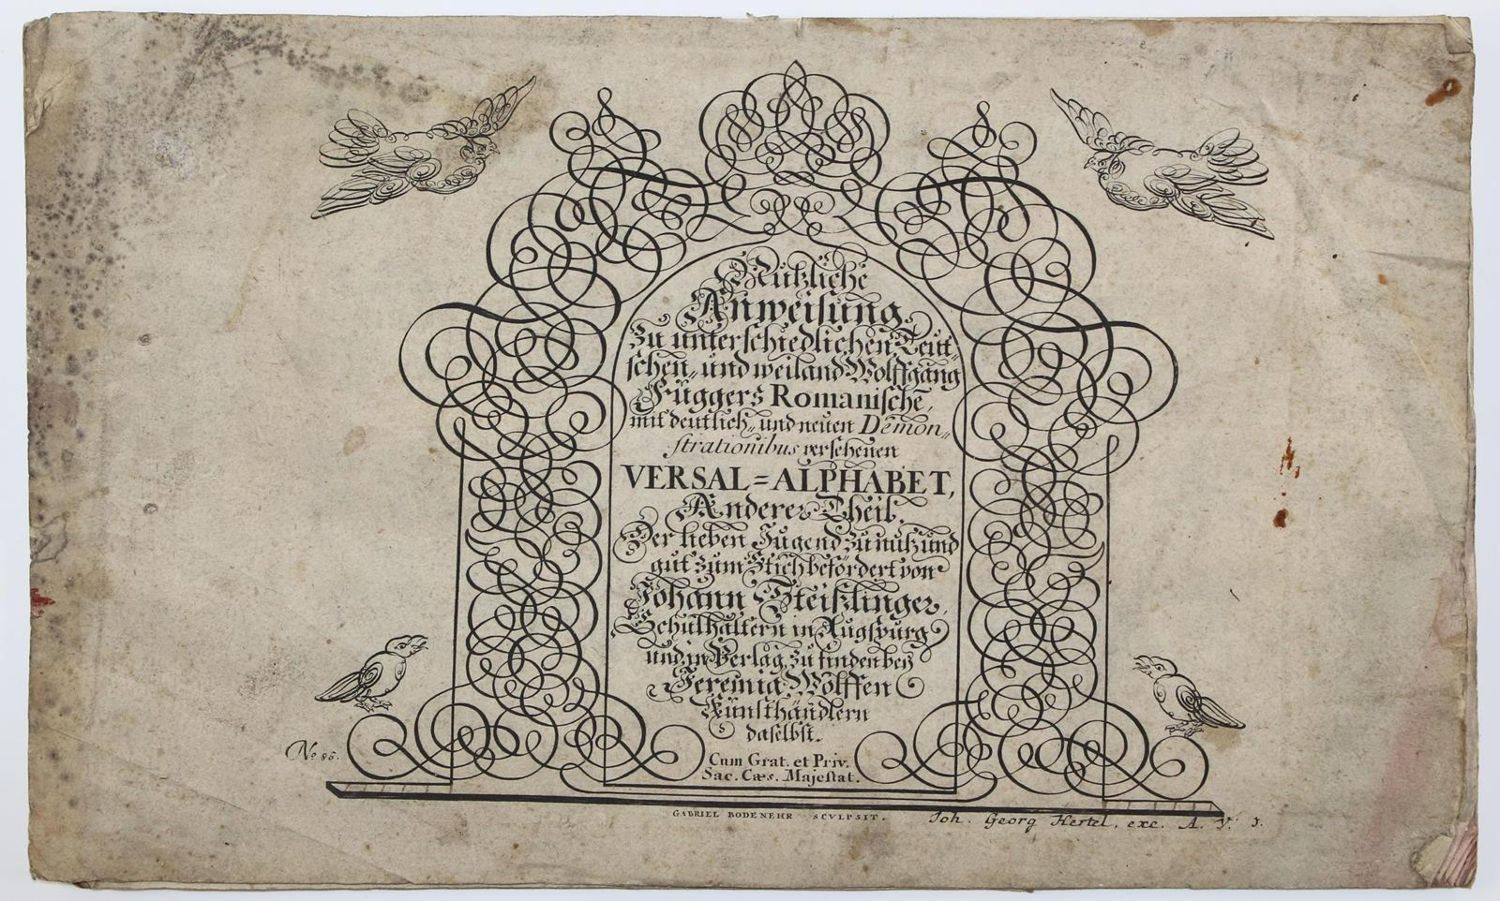 Nützliche
Anweisung
Zu unterschiedlichen Teut-
schen- und weiland Wolffgang
Fuggers Romanische,
mit deutlich- und neuen Demon-
strationibus versehenen
VERSAL=ALPHABET,
Anderer Theil,
Der lieben Jugend zu nutz und
gut zum Stich befördert von
Johann Steißlinger,
Schulhaltern in Augspurg
und in Verlag zu finden beÿ
Jeremia Wolffen
Künsthändlern
daselbst.
Cum Grat. et Priv.
Sac. Cæs. Majestat.
No 86.
GABRIEL BODENEHR SCVLPSIT.
Joh. Georg Hertel, exc. A. V.